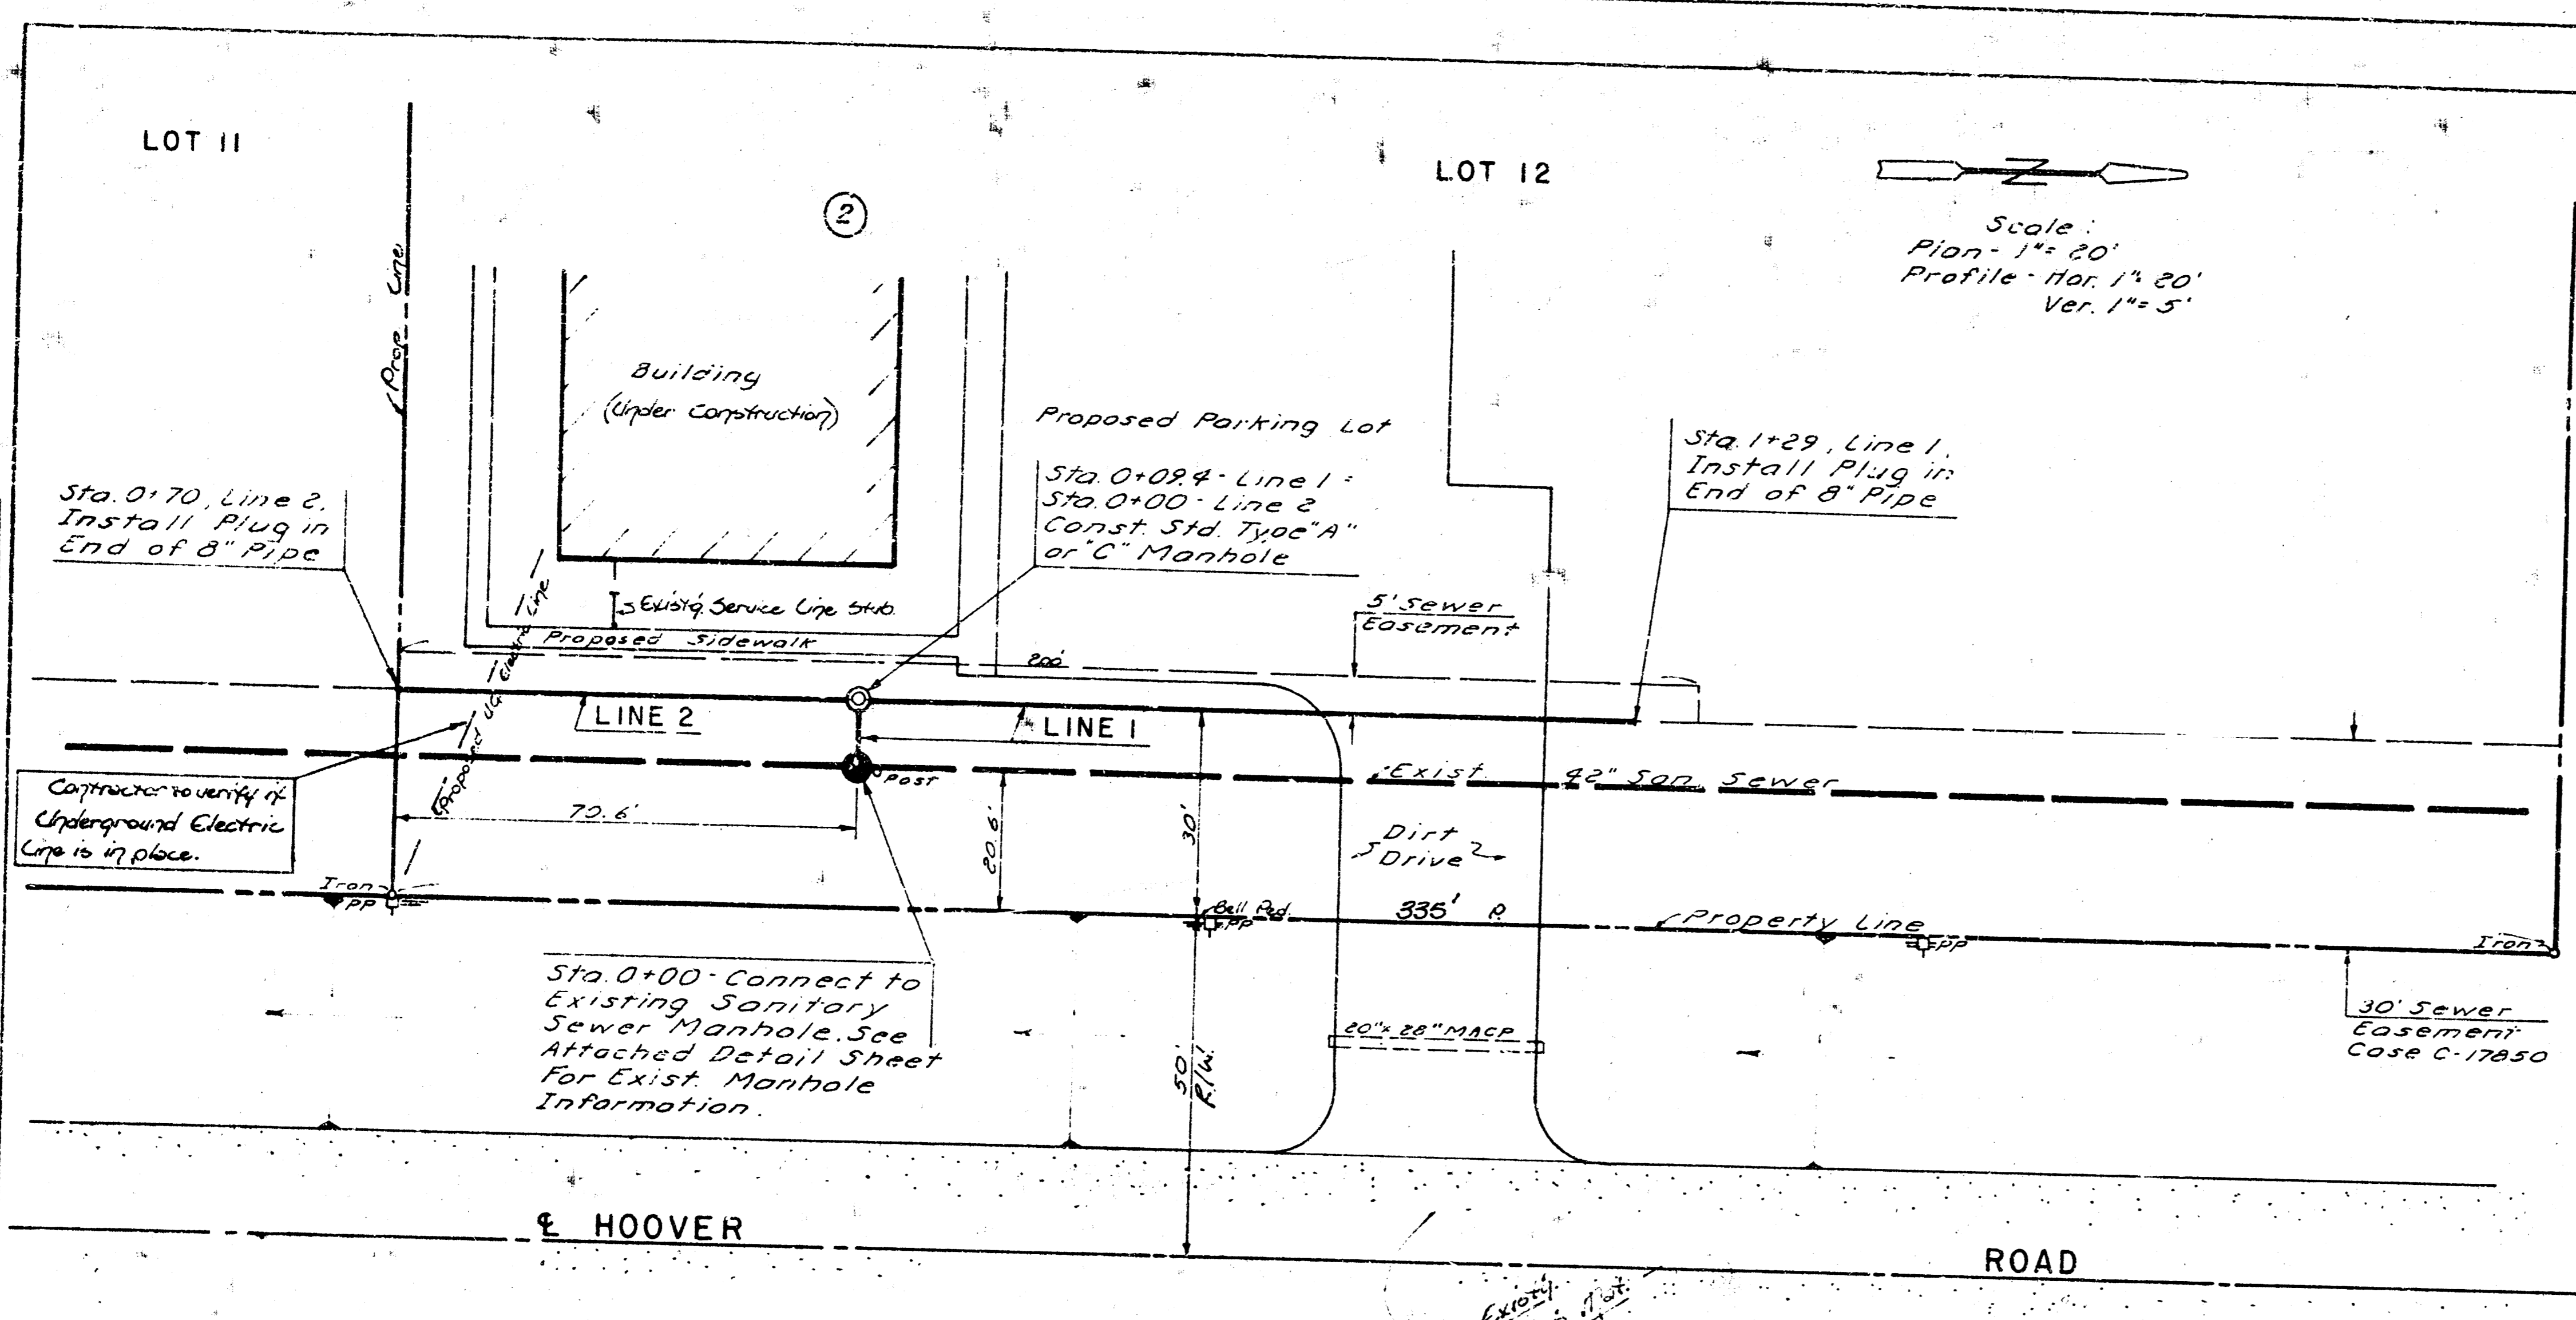 LOT 11
LOT 12
2
Scale:
Plan - 1"= 20'
Profile - Hor. 1"= 20'
Ver. 1"= 5'
Prop. Line
Building
(Under Construction)
Proposed Parking Lot
Sta. 0+70, Line 2.
Install Plug in
End of 8" Pipe
Sta. 0+09.4 - Line 1 =
Sta. 0+00 - Line 2
Const. Std. Type "A"
or "C" Manhole
Sta. 1+29, Line 1.
Install Plug in
End of 8" Pipe
Exist'g. Service Line Stub.
Proposed Sidewalk
5' Sewer
Easement
200'
LINE 2
LINE 1
Proposed UG Electric Line
Post
Exist. 42" San. Sewer
Contractor to verify if
Underground Electric
Line is in place.
70.6'
20.6'
30'
Dirt
Drive
Iron
PP
Bell Ped.
PP
335' P.
Property Line
PP
Iron
Sta. 0+00 - Connect to
Existing Sanitary
Sewer Manhole. See
Attached Detail Sheet
For Exist. Manhole
Information.
50'
R/W
20"x 28" MACP
30' Sewer
Easement
Case C-17850
℄ HOOVER
ROAD